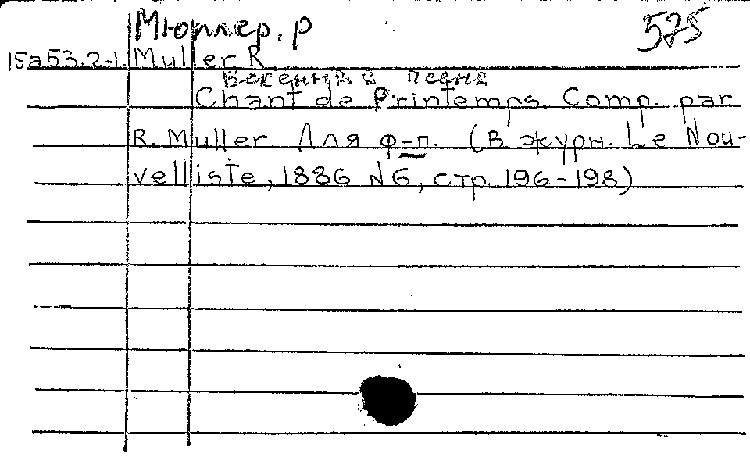 Мюллер. Р 575
15a53.2-1. Muller R.
Весенняя песня
Chant de Printemps. Comp. par
R. Muller Для ф-п. (В журн. Le Nou-
velliste, 1886 N6, стр. 196-198)